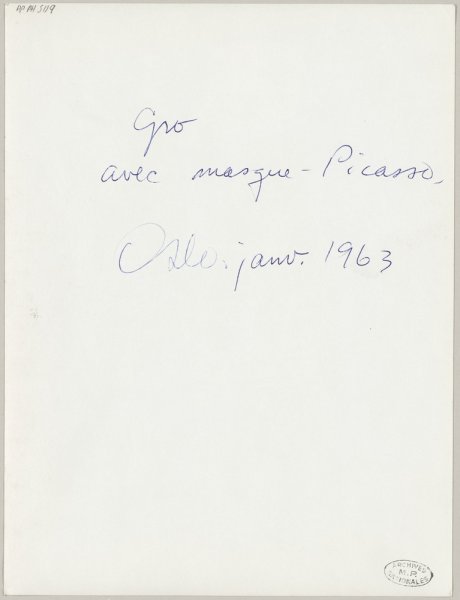 PP PH 5119
Gro
avec masque - Picasso,
Oslo. janv. 1963
ARCHIVES
M.P.
NATIONALES